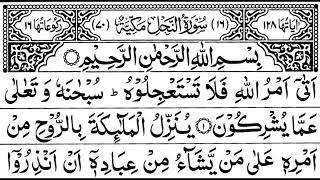 اٰيَاتُهَا ١٢٨ (١٦) سُوْرَةُ النَّحْلِ مَكِّيَّةٌ (٧٠) رُكُوْعَاتُهَا ١٦
بِسْمِ اللّٰهِ الرَّحْمٰنِ الرَّحِيْمِ ۝
اَتٰۤى اَمْرُ اللّٰهِ فَلَا تَسْتَعْجِلُوْهُ ؕ سُبْحٰنَهٗ وَ تَعٰلٰى
عَمَّا يُشْرِكُوْنَ ۝١ يُنَزِّلُ الْمَلٰٓئِكَةَ بِالرُّوْحِ مِنْ
اَمْرِهٖ عَلٰى مَنْ يَّشَآءُ مِنْ عِبَادِهٖۤ اَنْ اَنْذِرُوْۤا